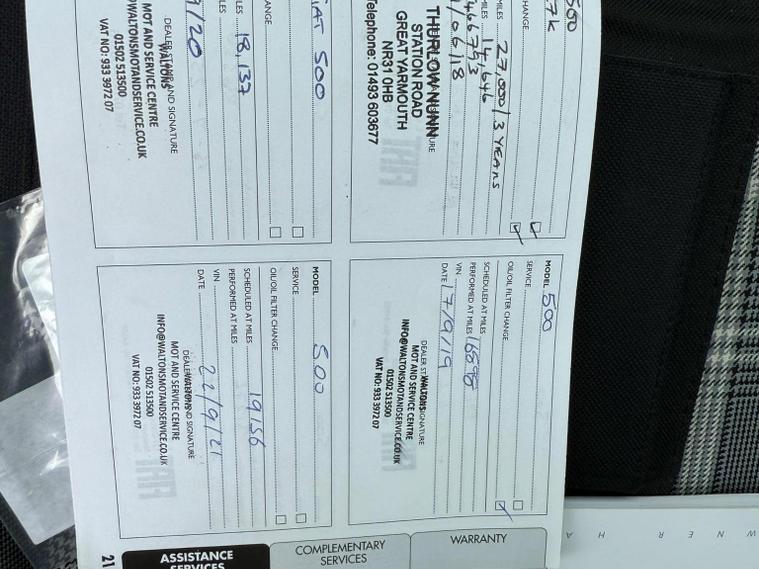 500
7k
CHANGE
MILES 27,000 / 3 YEARS
MILES 14,646
466793
/06/18
THURLOW NUNN
STATION ROAD
GREAT YARMOUTH
NR31 0HB
Telephone: 01493 603677
MODEL 500
SERVICE
OIL/OIL FILTER CHANGE
SCHEDULED AT MILES
PERFORMED AT MILES 16598
VIN
DATE 17/9/19
WALTONS
MOT AND SERVICE CENTRE
01502 513500
INFO@WALTONSMOTANDSERVICE.CO.UK
VAT NO: 933 3972 07
FIAT 500
CHANGE
MILES
MILES 18,137
9/20
DEALER STAMP AND SIGNATURE
WALTONS
MOT AND SERVICE CENTRE
01502 513500
@WALTONSMOTANDSERVICE.CO.UK
VAT NO: 933 3972 07
MODEL 500
SERVICE
OIL/OIL FILTER CHANGE
SCHEDULED AT MILES
PERFORMED AT MILES 19156
VIN
DATE 22/9/21
WALTONS
MOT AND SERVICE CENTRE
01502 513500
INFO@WALTONSMOTANDSERVICE.CO.UK
VAT NO: 933 3972 07
WARRANTY
COMPLEMENTARY
SERVICES
ASSISTANCE
SERVICES
21
W N E R H A